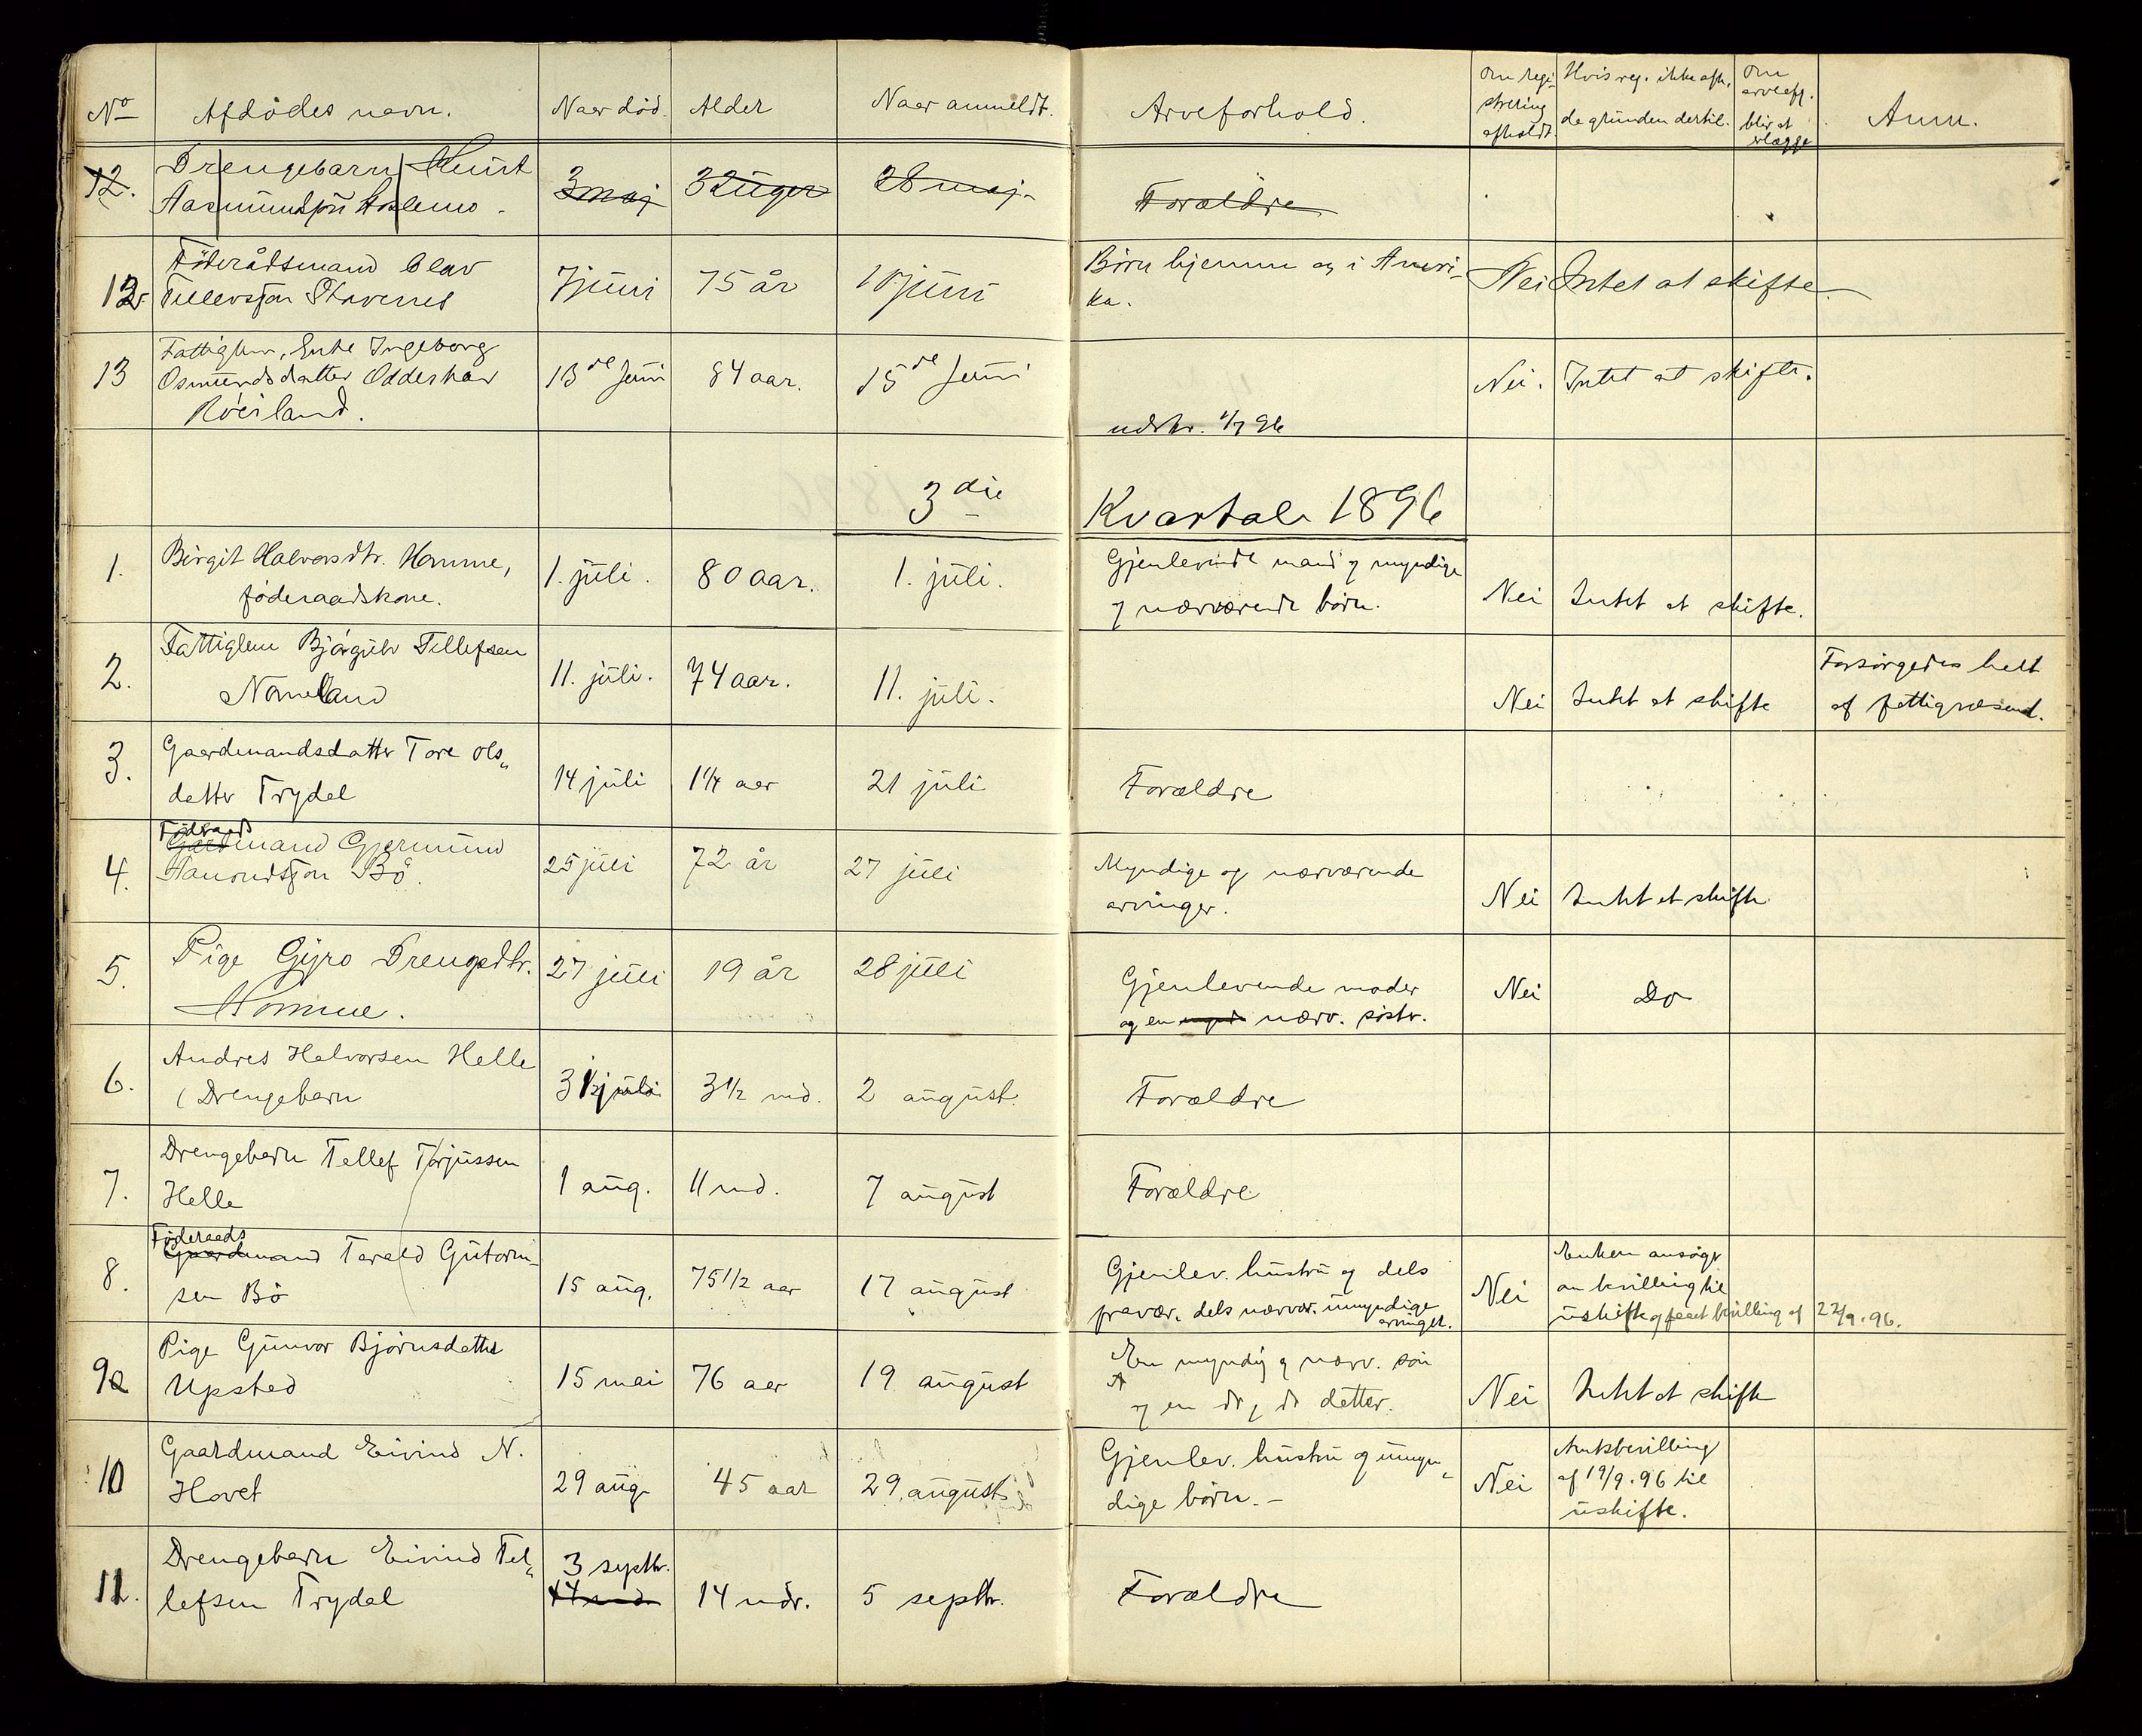 No Afdødes navn. Naar död. Alder Naar anmeldt. Arveforhold. Om regi- Hvis reg. ikke afh. Om Anm.
strering de grunden dertil. arveafg.
afholdt. blir at
erlægge
12. Drengebarn Knut 3 maj 3 uger 28 maj. Forældre
Aasmundsøn
12. Föderådsmand Olav 7 juni 75 år 10 juni Börn hjemme og i Ameri- Nei Intet at skifte
Tellevsson ka.
13 Fattiglem, Enke Ingeborg 13de Juni 84 aar. 15de Juni Nei. Intet at skifte.
Osmundsdatter
Röisland. udskr. 1/7 96
3die Kvartal 1896
1. Birgit Halvorsdtr. Homme, 1. juli. 80 aar. 1. juli. Gjenlevende mand og myndige Nei Intet at skifte.
føderaadskone. og nærværende børn.
2. Fattiglem Bjørgulv Tellefsen 11. juli. 74 aar. 11. juli. Nei Intet at skifte Forsørgedes helt
Nomeland af fattigvæsend.
3. Gaardmandsdatter Tore Ols„ 14 juli 1 1/4 aar 21 juli Forældre
datter Trydal
4. Föderaads
Gardmand Gjermund 25 juli 72 år 27 juli Myndige og nærværende Nei Intet at skifte
Aamondsson Bö. arvinger.
5. Pige Gyro Drengsdtr. 27 juli 19 år 28 juli Gjenlevende moder Nei Do
Homme. og en nærv. søster.
6. Andres Halvorsen Helle 31 juli 3 1/2 md. 2 august. Forældre
( Drengebarn
7. Drengebarn Tellef Torjussen 1 aug. 11 md. 7 august Forældre
Helle
8. Føderaads
Gaardmand Tarald Gutorm- 15 aug. 75 1/2 aar 17 august Gjenlev. hustru og dels Nei Enken ansøgt
sen Bö fravær. dels nærvær. umyndige om bevilling til
arvinger. uskifte og faaet bevilling af 22/9. 96.
9 Pige Gunvor Bjørnsdatter 15 mai 76 aar 19 august En myndig og nærv. søn Nei Intet at skifte
Upsted og en do, do datter.
10 Gaardmand Eivind N. 29 aug 45 aar 29. august Gjenlev. hustru og umyn„ Nei Amtsbevilling
Hovet dige børn. – af 19/9. 96 til
uskifte.
11. Drengebarn Eivind Tel„ 3 septbr. 14 mdr. 5 septbr. Forældre
lefsen Trydal 14 md.